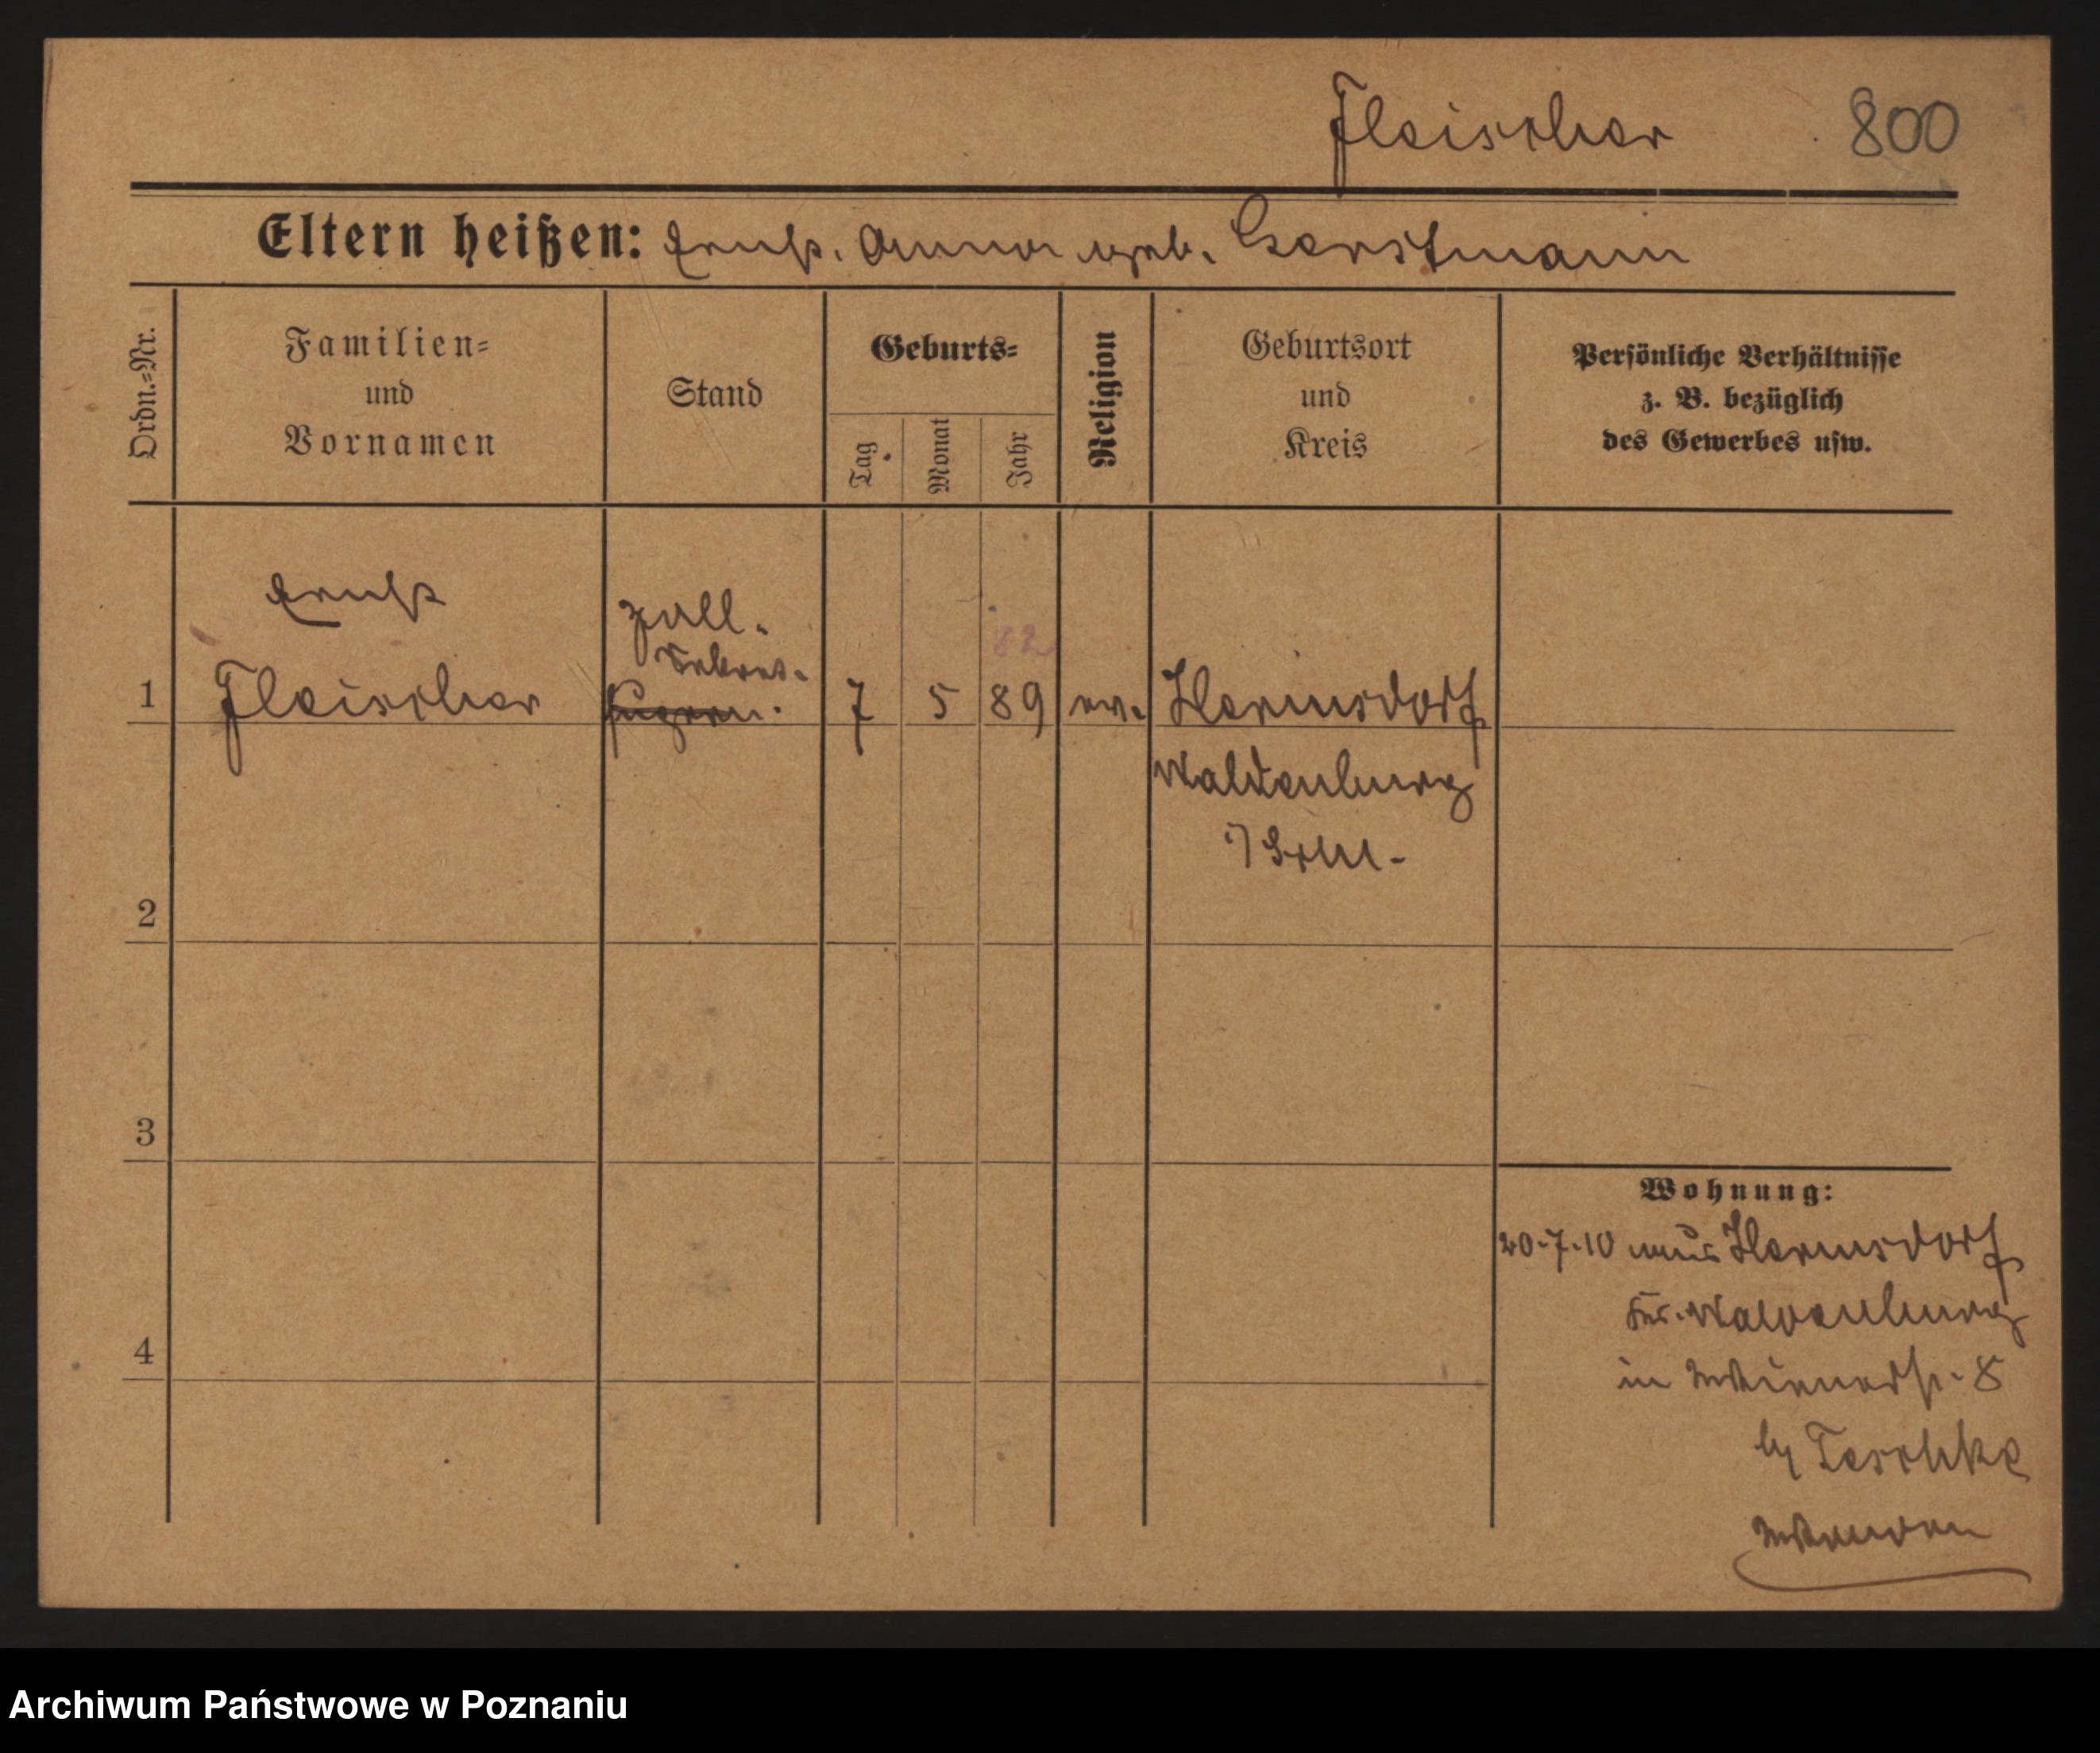 Fleischer 800
Eltern heißen: Ernst. Anna geb. Gerstmann
Ordn.=Nr.
Familien=
und
Vornamen
Stand
Geburts=
Tag
Monat
Jahr
Religion
Geburtsort
und
Kreis
Persönliche Verhältnisse
z. B. bezüglich
des Gewerbes usw.
Ernst
Zoll-
Sekret.
82
1 Fleischer 7 5 89 ev. Hermsdorf
Waldenburg
i/ Schl.
2
3
4
Wohnung:
20.7.10 aus Hermsdorf
Kr. Waldenburg
in 8
by Teschke